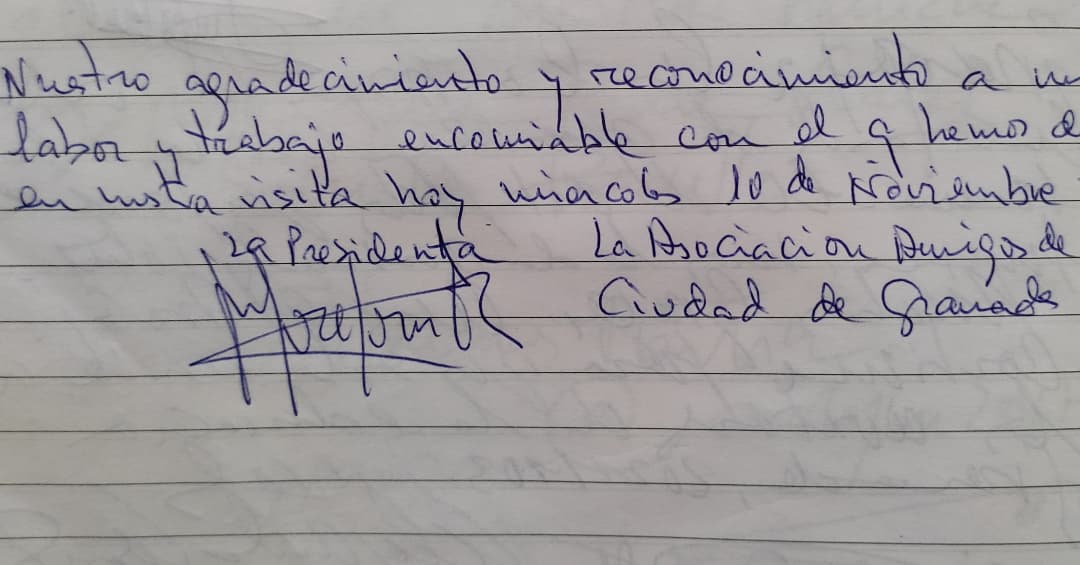 Nuestro agradecimiento y reconocimiento a
labor y trabajo encomiable con el q hemos
en nustra visita hoy miercoles 10 de Noviembre
La Presidenta La Asociacion Amigos de
Ciudad de Granada